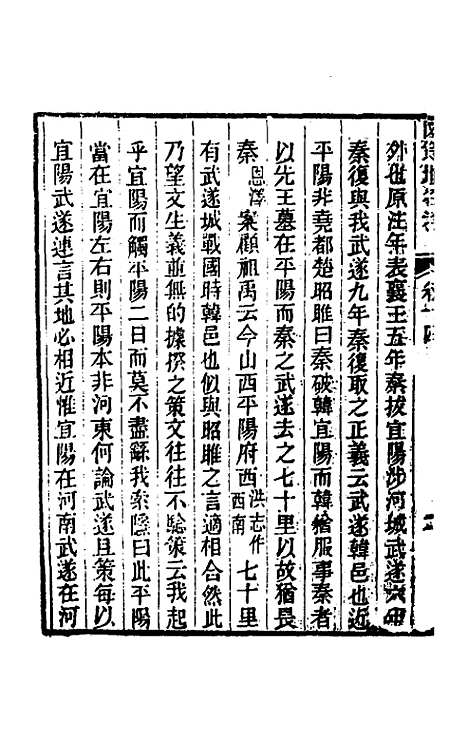 國策地名考 卷十四
外也原注年表襄王五年秦拔宜陽涉河城武遂六年
秦復與我武遂九年秦復取之正義云武遂韓邑也近
平陽非堯都楚昭雎曰秦破韓宜陽而韓猶服事秦者
以先王墓在平陽而秦之武遂去之七十里以故猶畏
秦恩澤案顧祖禹云今山西平陽府西洪志作西南七十里
有武遂城戰國時韓邑也似與昭雎之言適相合然此
乃望文生義並無的據揆之策文往往不驗策云我起
乎宜陽而觸平陽二日而莫不盡繇我索隱曰此平陽
當在宜陽左右則平陽本非河東何論武遂且策每以
宜陽武遂連言其地必相近惟宜陽在河南武遂在河